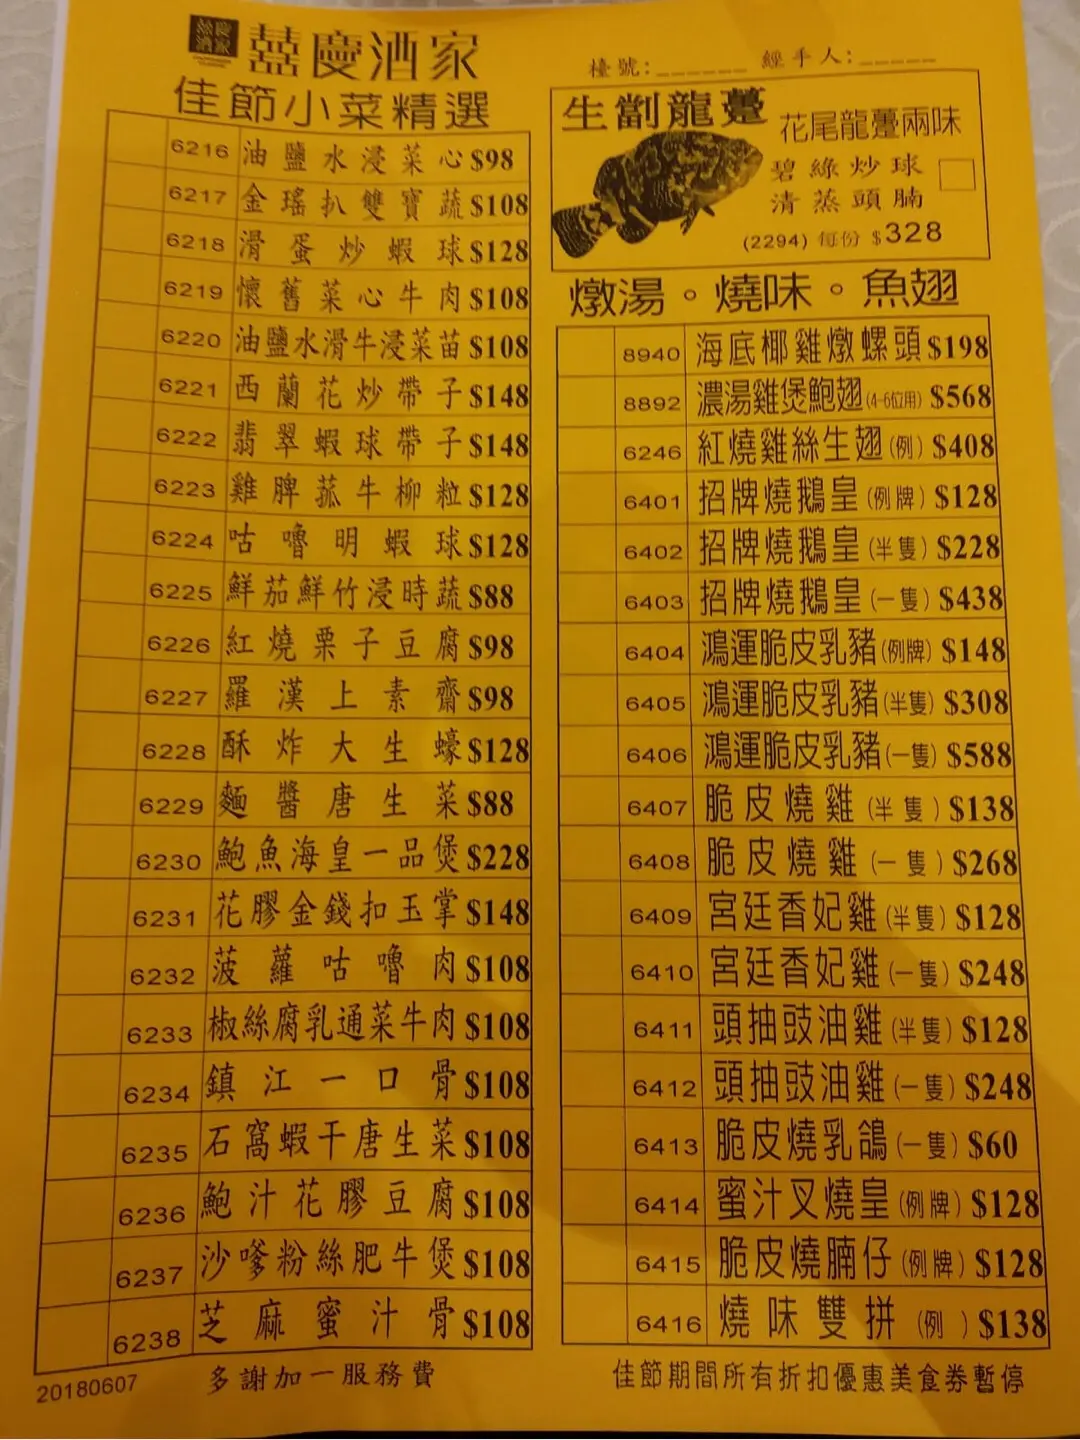 囍慶酒家
佳節小菜精選
6216 油鹽水浸菜心 $98
6217 金瑤扒雙寶蔬 $108
6218 滑蛋炒蝦球 $128
6219 懷舊菜心牛肉 $108
6220 油鹽水滑牛浸菜苗 $108
6221 西蘭花炒帶子 $148
6222 翡翠蝦球帶子 $148
6223 雞脾菰牛柳粒 $128
6224 咕嚕明蝦球 $128
6225 鮮茄鮮竹浸時蔬 $88
6226 紅燒栗子豆腐 $98
6227 羅漢上素齋 $98
6228 酥炸大生蠔 $128
6229 麵醬唐生菜 $88
6230 鮑魚海皇一品煲 $228
6231 花膠金錢扣玉掌 $148
6232 菠蘿咕嚕肉 $108
6233 椒絲腐乳通菜牛肉 $108
6234 鎮江一口骨 $108
6235 石窩蝦干唐生菜 $108
6236 鮑汁花膠豆腐 $108
6237 沙嗲粉絲肥牛煲 $108
6238 芝麻蜜汁骨 $108
20180607
多謝加一服務費
檯號:______ 經手人:_____
生劏龍躉
花尾龍躉兩味
碧綠炒球
清蒸頭腩
(2294) 每份 $328
燉湯。燒味。魚翅
8940 海底椰雞燉螺頭 $198
8892 濃湯雞煲鮑翅(4-6位用) $568
6246 紅燒雞絲生翅(例) $408
6401 招牌燒鵝皇(例牌) $128
6402 招牌燒鵝皇(半隻) $228
6403 招牌燒鵝皇(一隻) $438
6404 鴻運脆皮乳豬(例牌) $148
6405 鴻運脆皮乳豬(半隻) $308
6406 鴻運脆皮乳豬(一隻) $588
6407 脆皮燒雞(半隻) $138
6408 脆皮燒雞(一隻) $268
6409 宮廷香妃雞(半隻) $128
6410 宮廷香妃雞(一隻) $248
6411 頭抽豉油雞(半隻) $128
6412 頭抽豉油雞(一隻) $248
6413 脆皮燒乳鴿(一隻) $60
6414 蜜汁叉燒皇(例牌) $128
6415 脆皮燒腩仔(例牌) $128
6416 燒味雙拼(例) $138
佳節期間所有折扣優惠美食券暫停